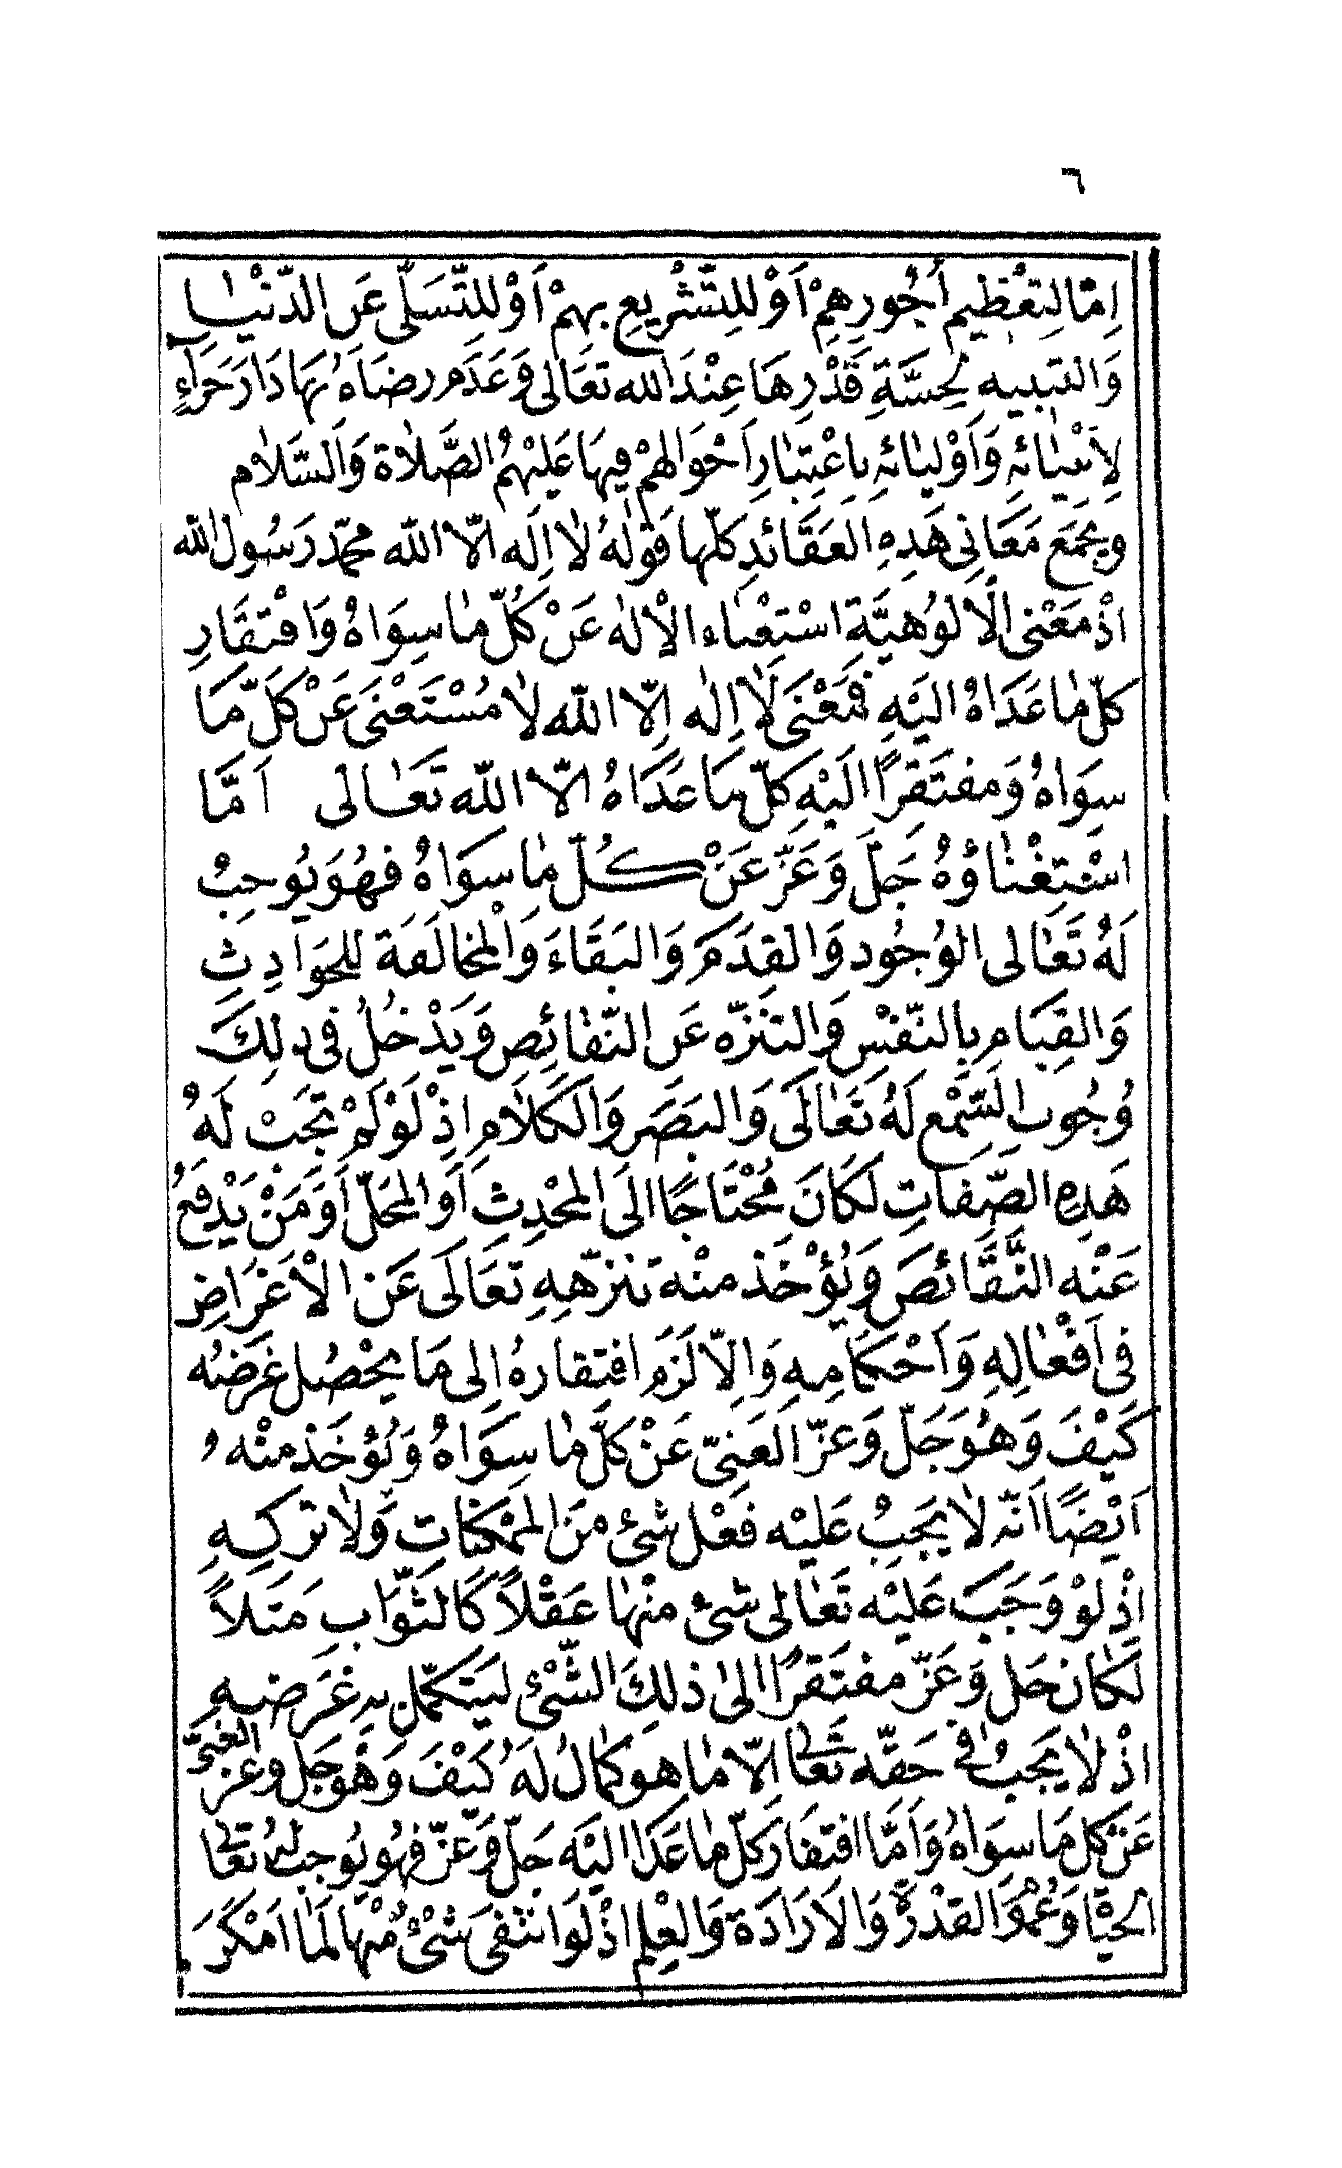 ٦
اِمّا لِتعْظِيم أُجُورِهِمْ اَوْ لِلتَّشْرِيعِ بِهِمْ اَوْ لِلتَّسَلِّى عَنِ الدّنْيٰا
وَالتنبيه لِخِسَّةِ قَدْرِهَا عِنْدَ الله تعَالى وَعَدَم رضَاهُ بَهَا دَارَ جَزاءٍ
لِاَنْبيٰائهِ وَاَوْليٰائهِ بِاعْتِبٰارِ اَحْوَالهِمْ فِيهَا عَليْهُم الصَّلاٰة وَالسَّلاٰم
وَيجْمَع مَعَانِى هَذِهِ العَقَائدِ كلّها قَوْلهُ لاٰ اِلَه اِلّا الله محمّد رَسُول الله
اذْ مَعْنى الْاُلوُهيَّةِ اسْتِغْنٰاء الْاِلٰه عَنْ كُلّ مٰا سِوَاهُ وَافْتقَارِ
كلّ مٰا عَدَاهُ اليَهِ فمَعْنَى لَاٰ اِلٰه اِلّا الله لاٰ مُسْتَغْنَى عَنْ كلّ مَا
سِوَاهُ وَمفتَقرًا اليْهِ كلّ مٰا عَدَاهُ الّا الله تَعَالى اَمَّا
اسْتِغْنٰاؤهُ جَلّ وَعَزّ عَنْ كُلّ مٰا سِوَاهُ فهُوَ يُوجِبْ
لَهُ تَعٰالى الوُجُود وَالقِدَمَ وَالبَقَاءَ وَالْمخالَفَة لِلحَوَادِثِ
وَالقِيَامِ بِالنّفْسِ وَالتنَزّه عَن النّقائِصِ وَيَدْخُلُ فى ذلِكَ
وُجُوب السَّمْعِ لَهُ تَعٰالَى وَالبَصَرِ وَالكَلَامِ اِذْ لَوْ لَمْ تَجَبْ لَهُ
هَذِهِ الصِّفاتِ لَكَانَ مُحْتَاجًا الَى المحْدِثِ اَوِ المحَلّ اَوَ مَنْ يَدْفعُ
عَنْه النَّقَائصَ وَيُؤْخَذ منْه تنزّهِهِ تعَالَى عَن الْاَغْرَاضِ
فى اَفْعٰالِهِ وَاَحْكامِهِ وَاِلّا لَزَمَ افتقارهُ اِلى مَا يحْصُل غرَضهُ
كَيْفَ وَهُوَ جَلّ وَعزّ الغَنِىّ عَنْ كلّ مٰا سِوَاهُ وَيُؤخَذ منْه
اَيْضًا اَنّه لاٰ يَجِبُ عَليْه فعْل شئ مَن الممْكنَاتِ وَلاٰ تَركِهِ
اِذْ لَوْ وَجَبَ عَليْه تَعٰالى شئ منْهٰا عَقْلاً كَالثَّوَابِ مَثلاً
لَكٰان جَل وَعَزّ مفتَقرًا الىٰ ذلِكَ الشّئْ ليَتكمّل بهِ غَرَضهِ
اِذْ لاٰ يَجِبُ فٰى حَقّه تعَالى اِلّا مٰا هو كمَالُ لَهُ كَيْفَ وَهُو جَل وَعَزّ الغنىّ
عَنْ كل مَا سوَاهُ وَاَمَّا افتقَار كلّ مٰا عَدَا اليَه جَلّ وَعَزّ فهُو يُوجب لهُ تعَالى
الحيٰاة وَعُمُومَ القدْرَة وَالاَرَادَة وَالعِلم اذْ لَو انتفى شئْ مُنْهَا لَمَا امَكَنَ